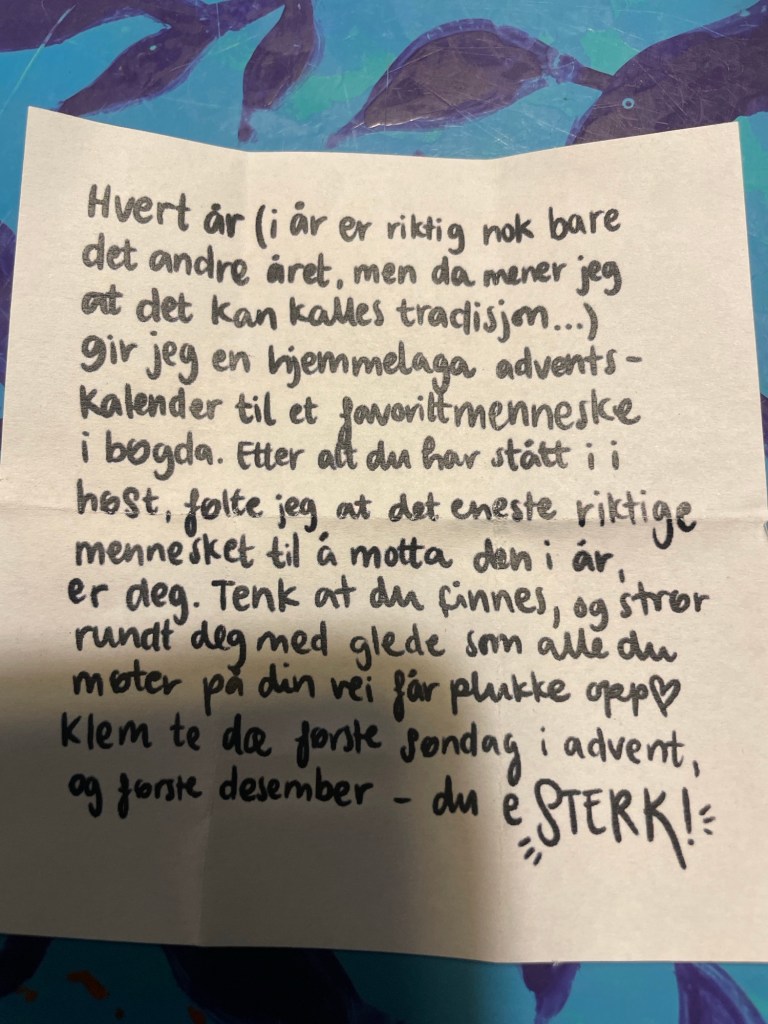 Hvert år (i år er riktig nok bare
det andre året, men da mener jeg
at det kan kalles tradisjon...)
gir jeg en hjemmelaga advents-
kalender til et favorittmenneske
i bøgda. Etter alt du har stått i i
høst, følte jeg at det eneste riktige
mennesket til å motta den i år,
er deg. Tenk at du finnes, og strør
rundt deg med glede som alle du
møter på din vei får plukke opp♡
Klem te dæ første søndag i advent,
og første desember – du e STERK!